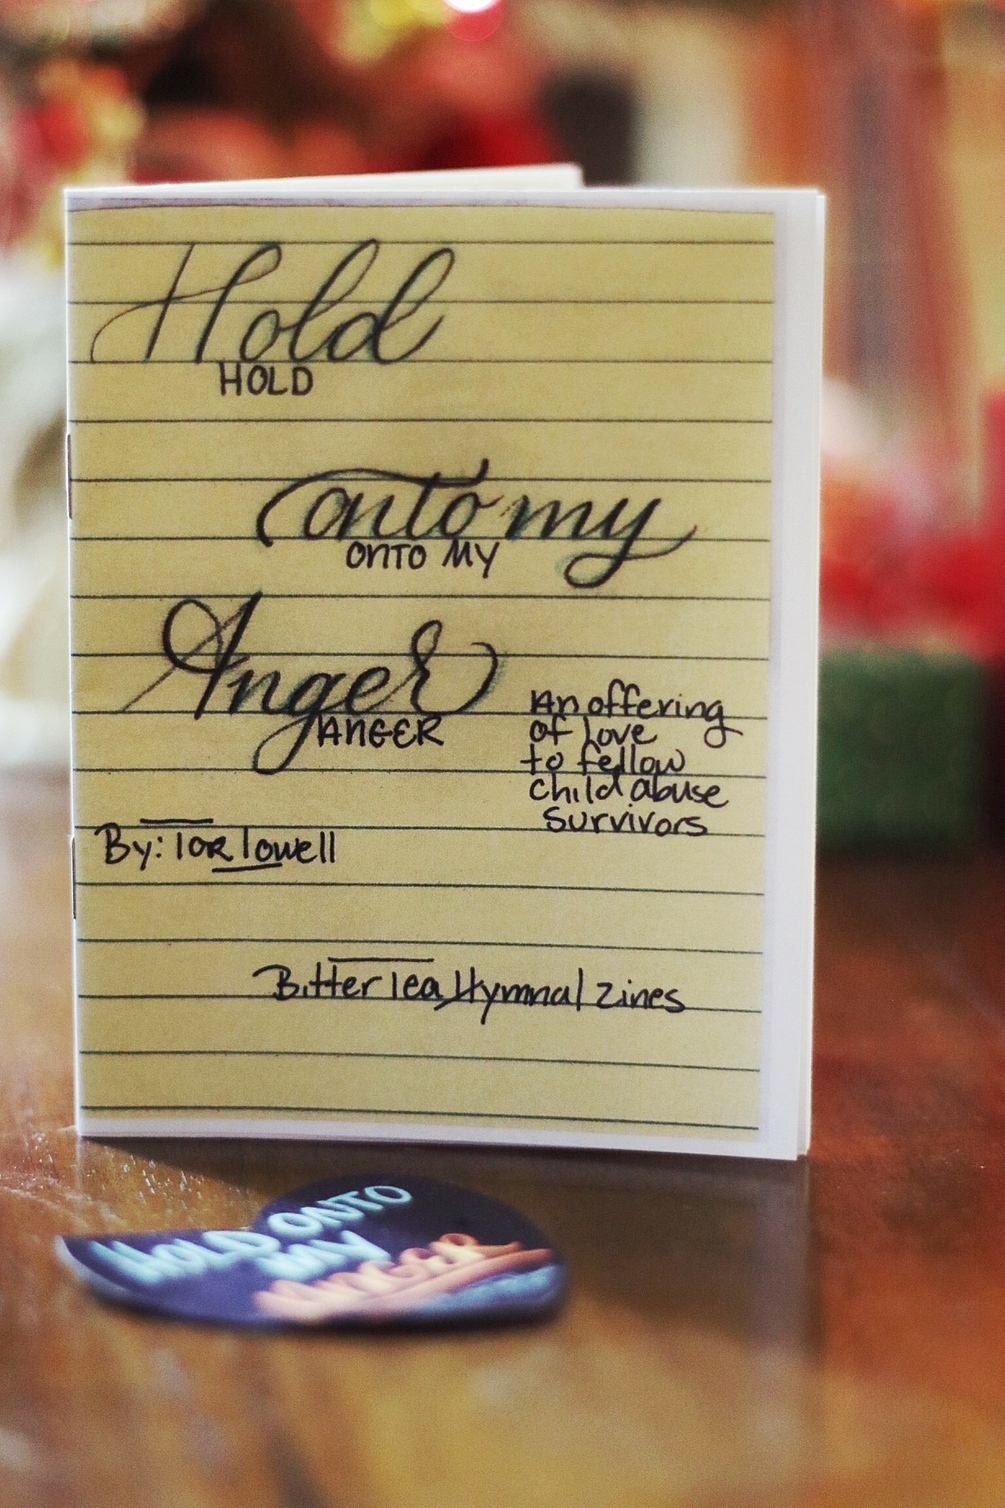 Hold
HOLD
onto my
ONTO MY
Anger
ANGER
An offering
of love
to fellow
child abuse
survivors
By: Tor Lowell
Bitter Tea Hymnal Zines
HOLD ONTO
MY
ANGER